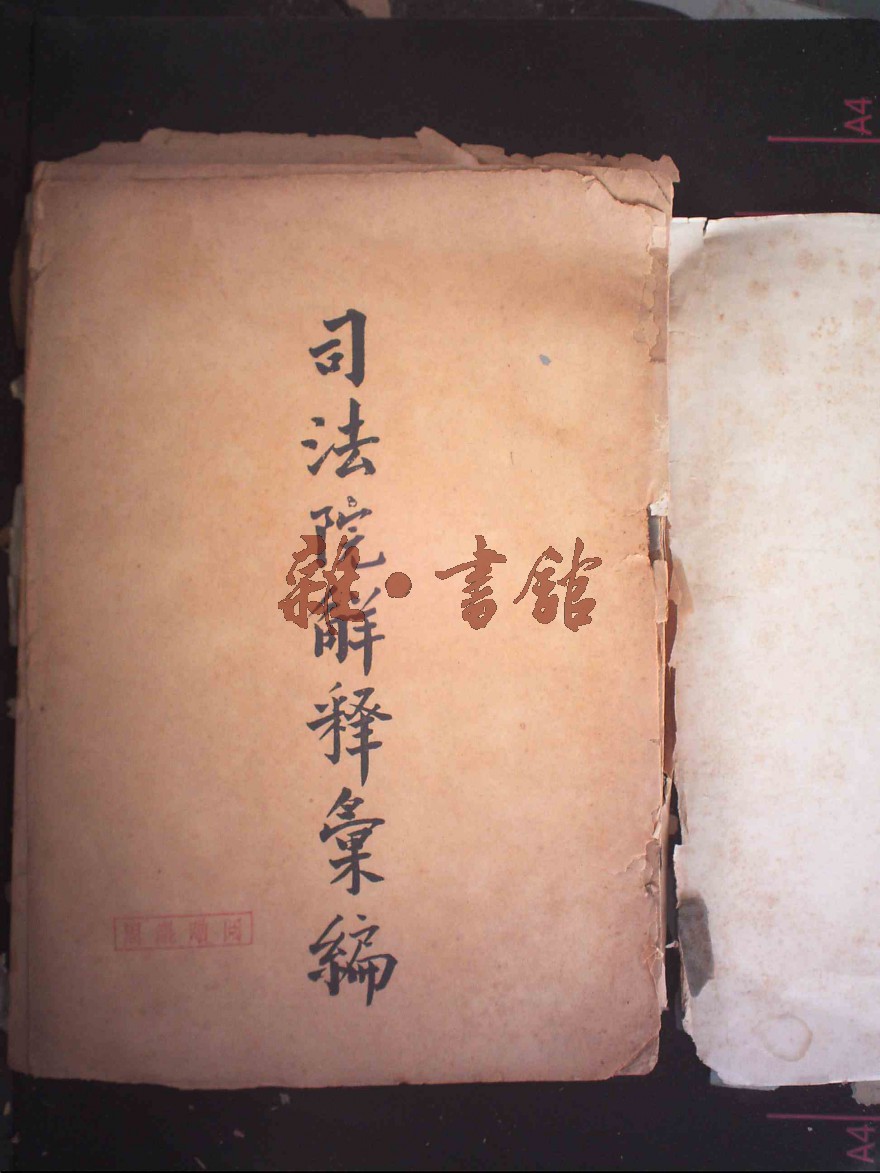 司法院解释彙編
雜·書館
A4
A4